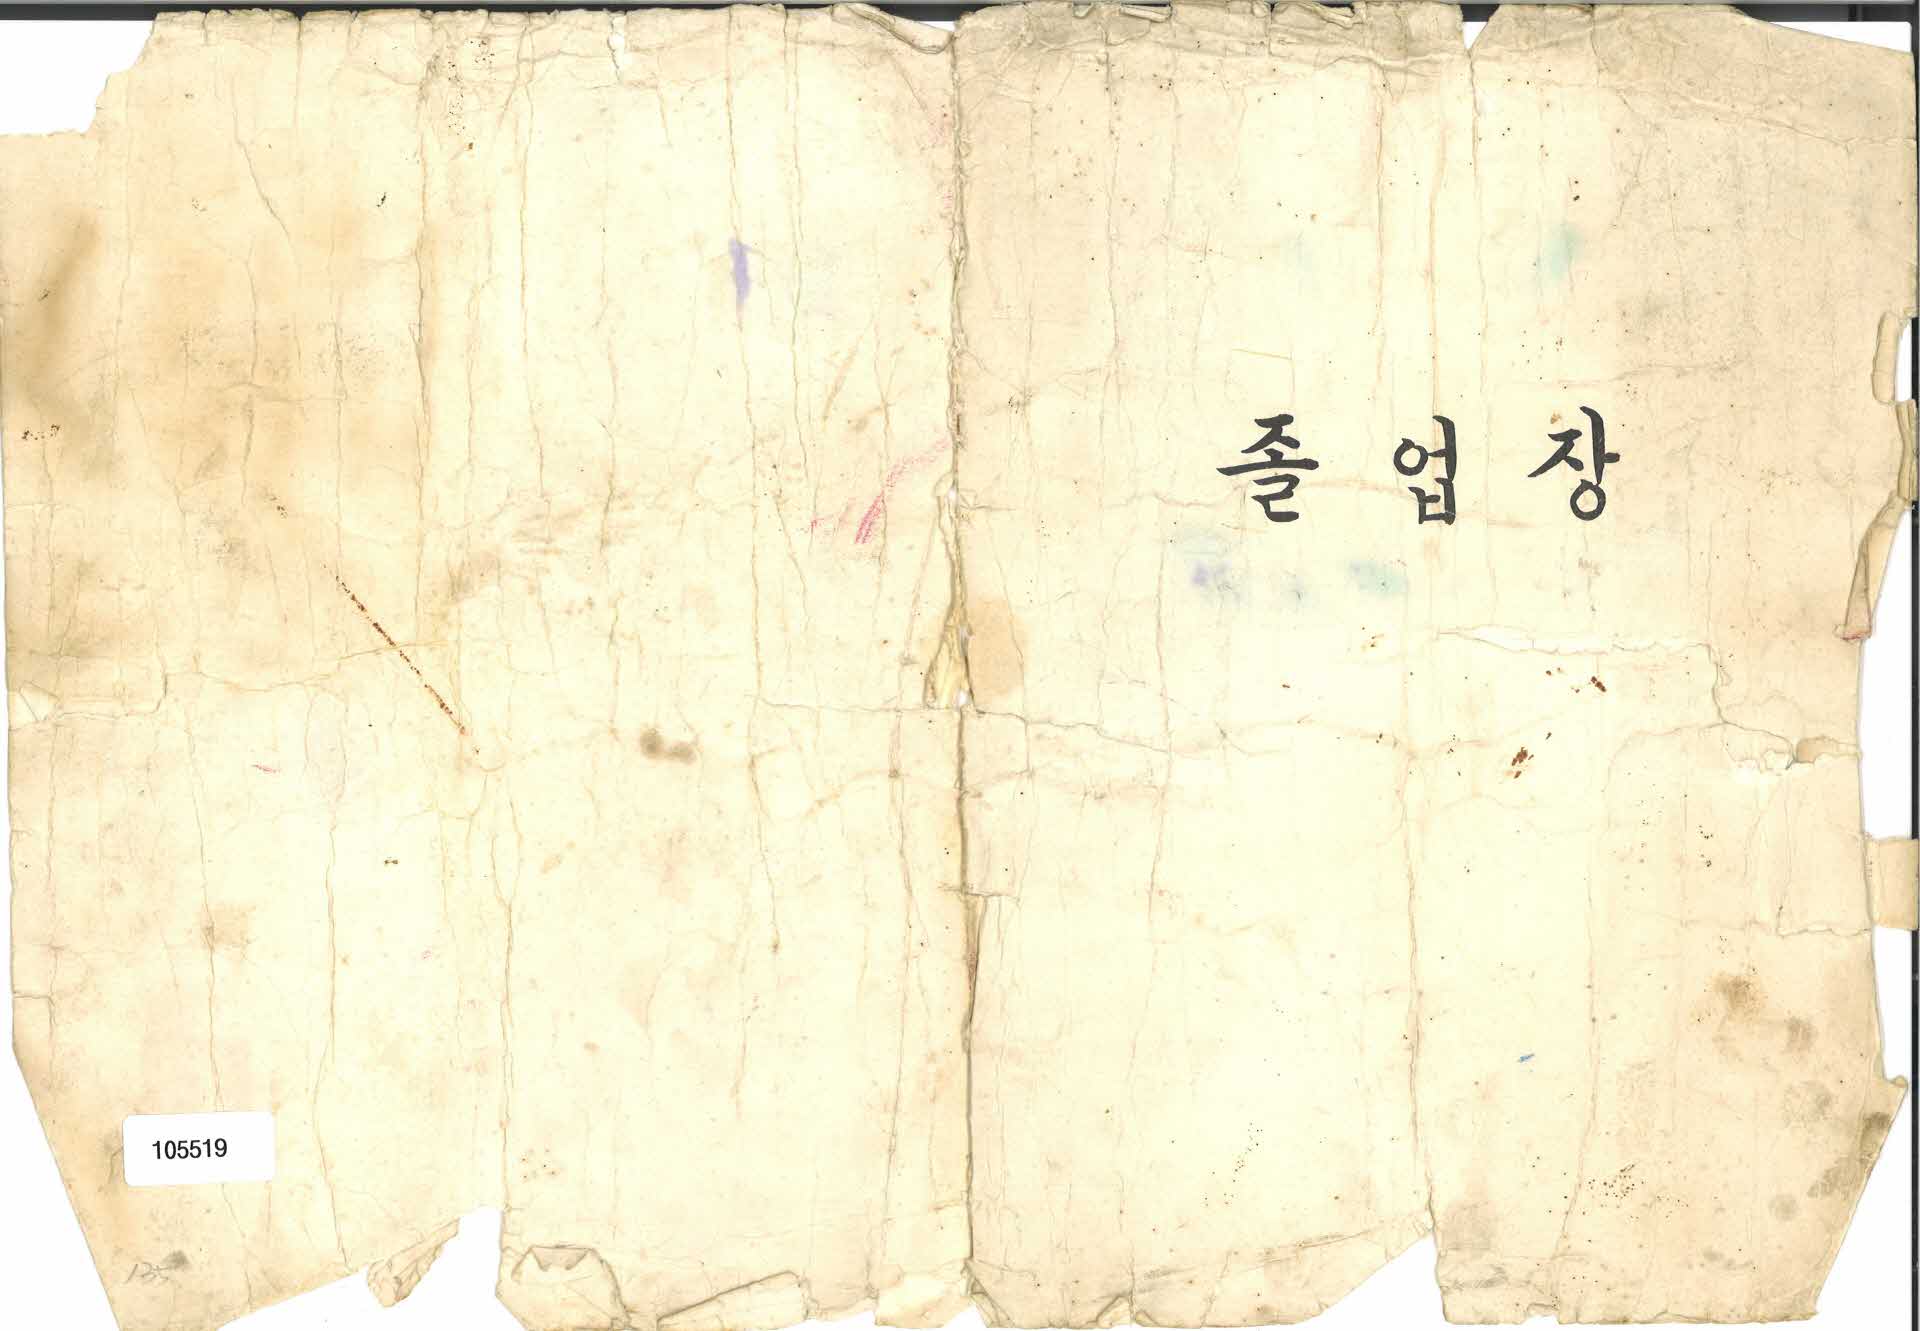 졸 업 장
105519
135